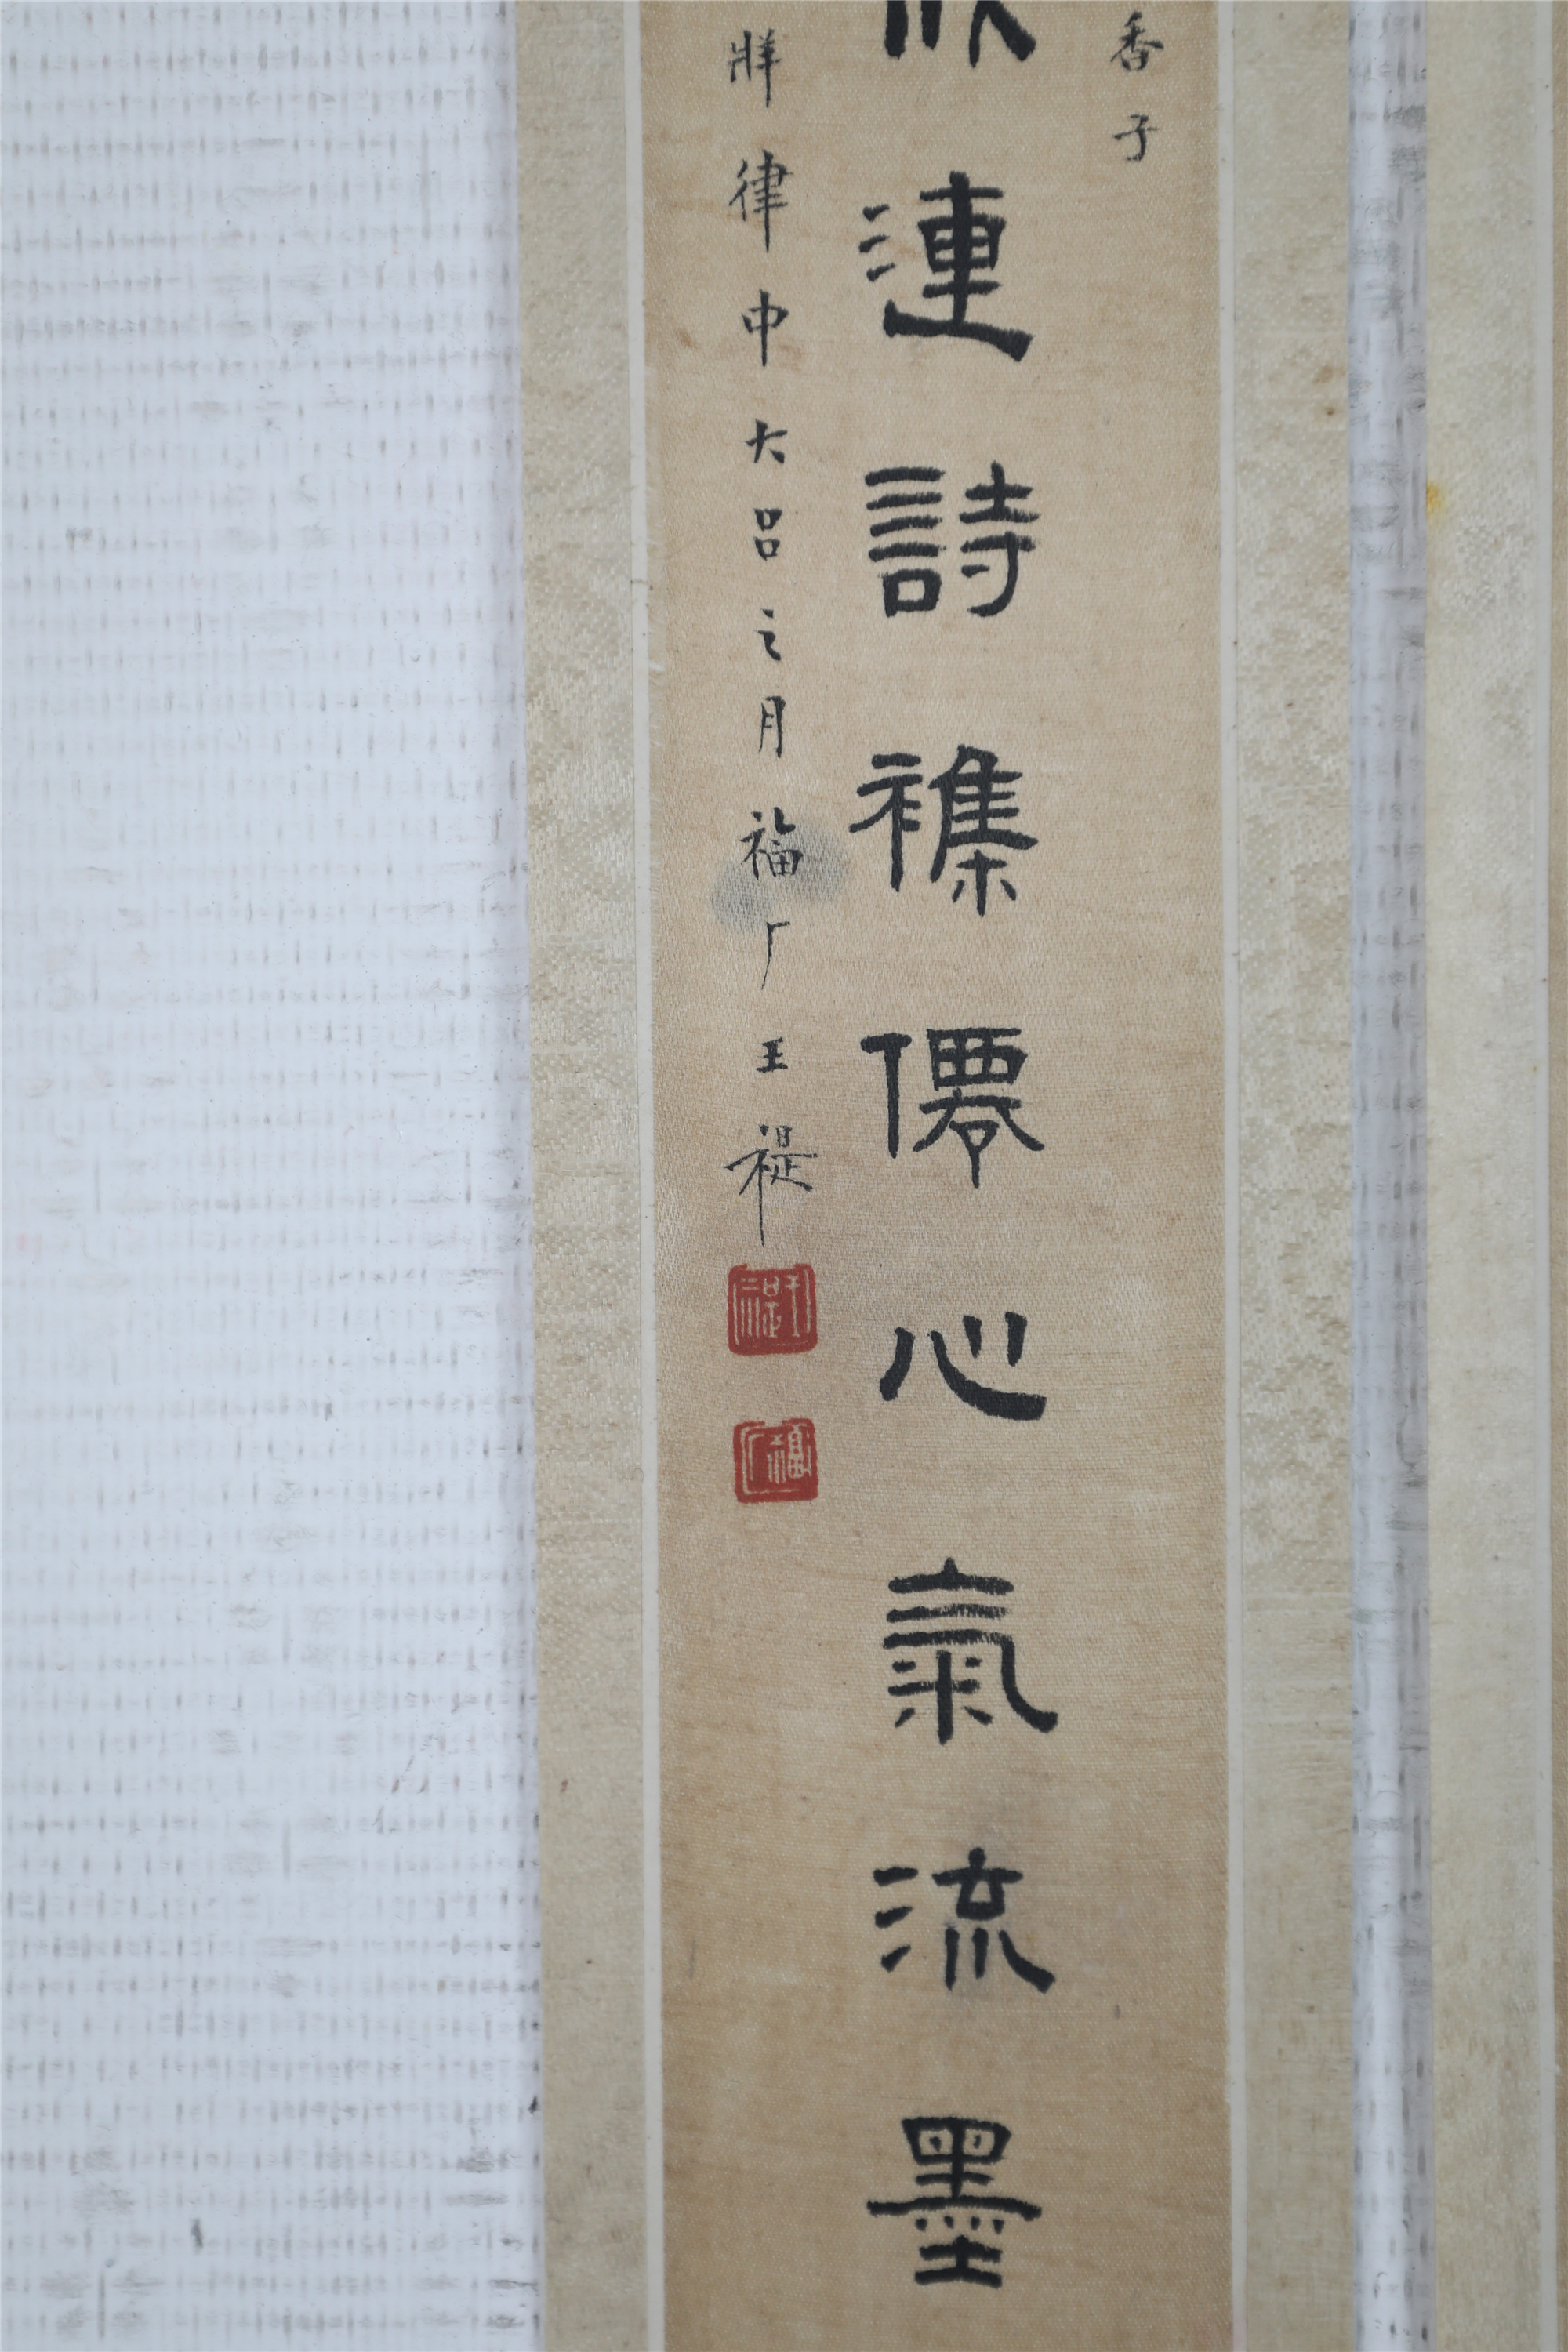 香子
漣詩襍僊心氣流墨
牂律中大呂之月福厂王禔
王禔
福厂